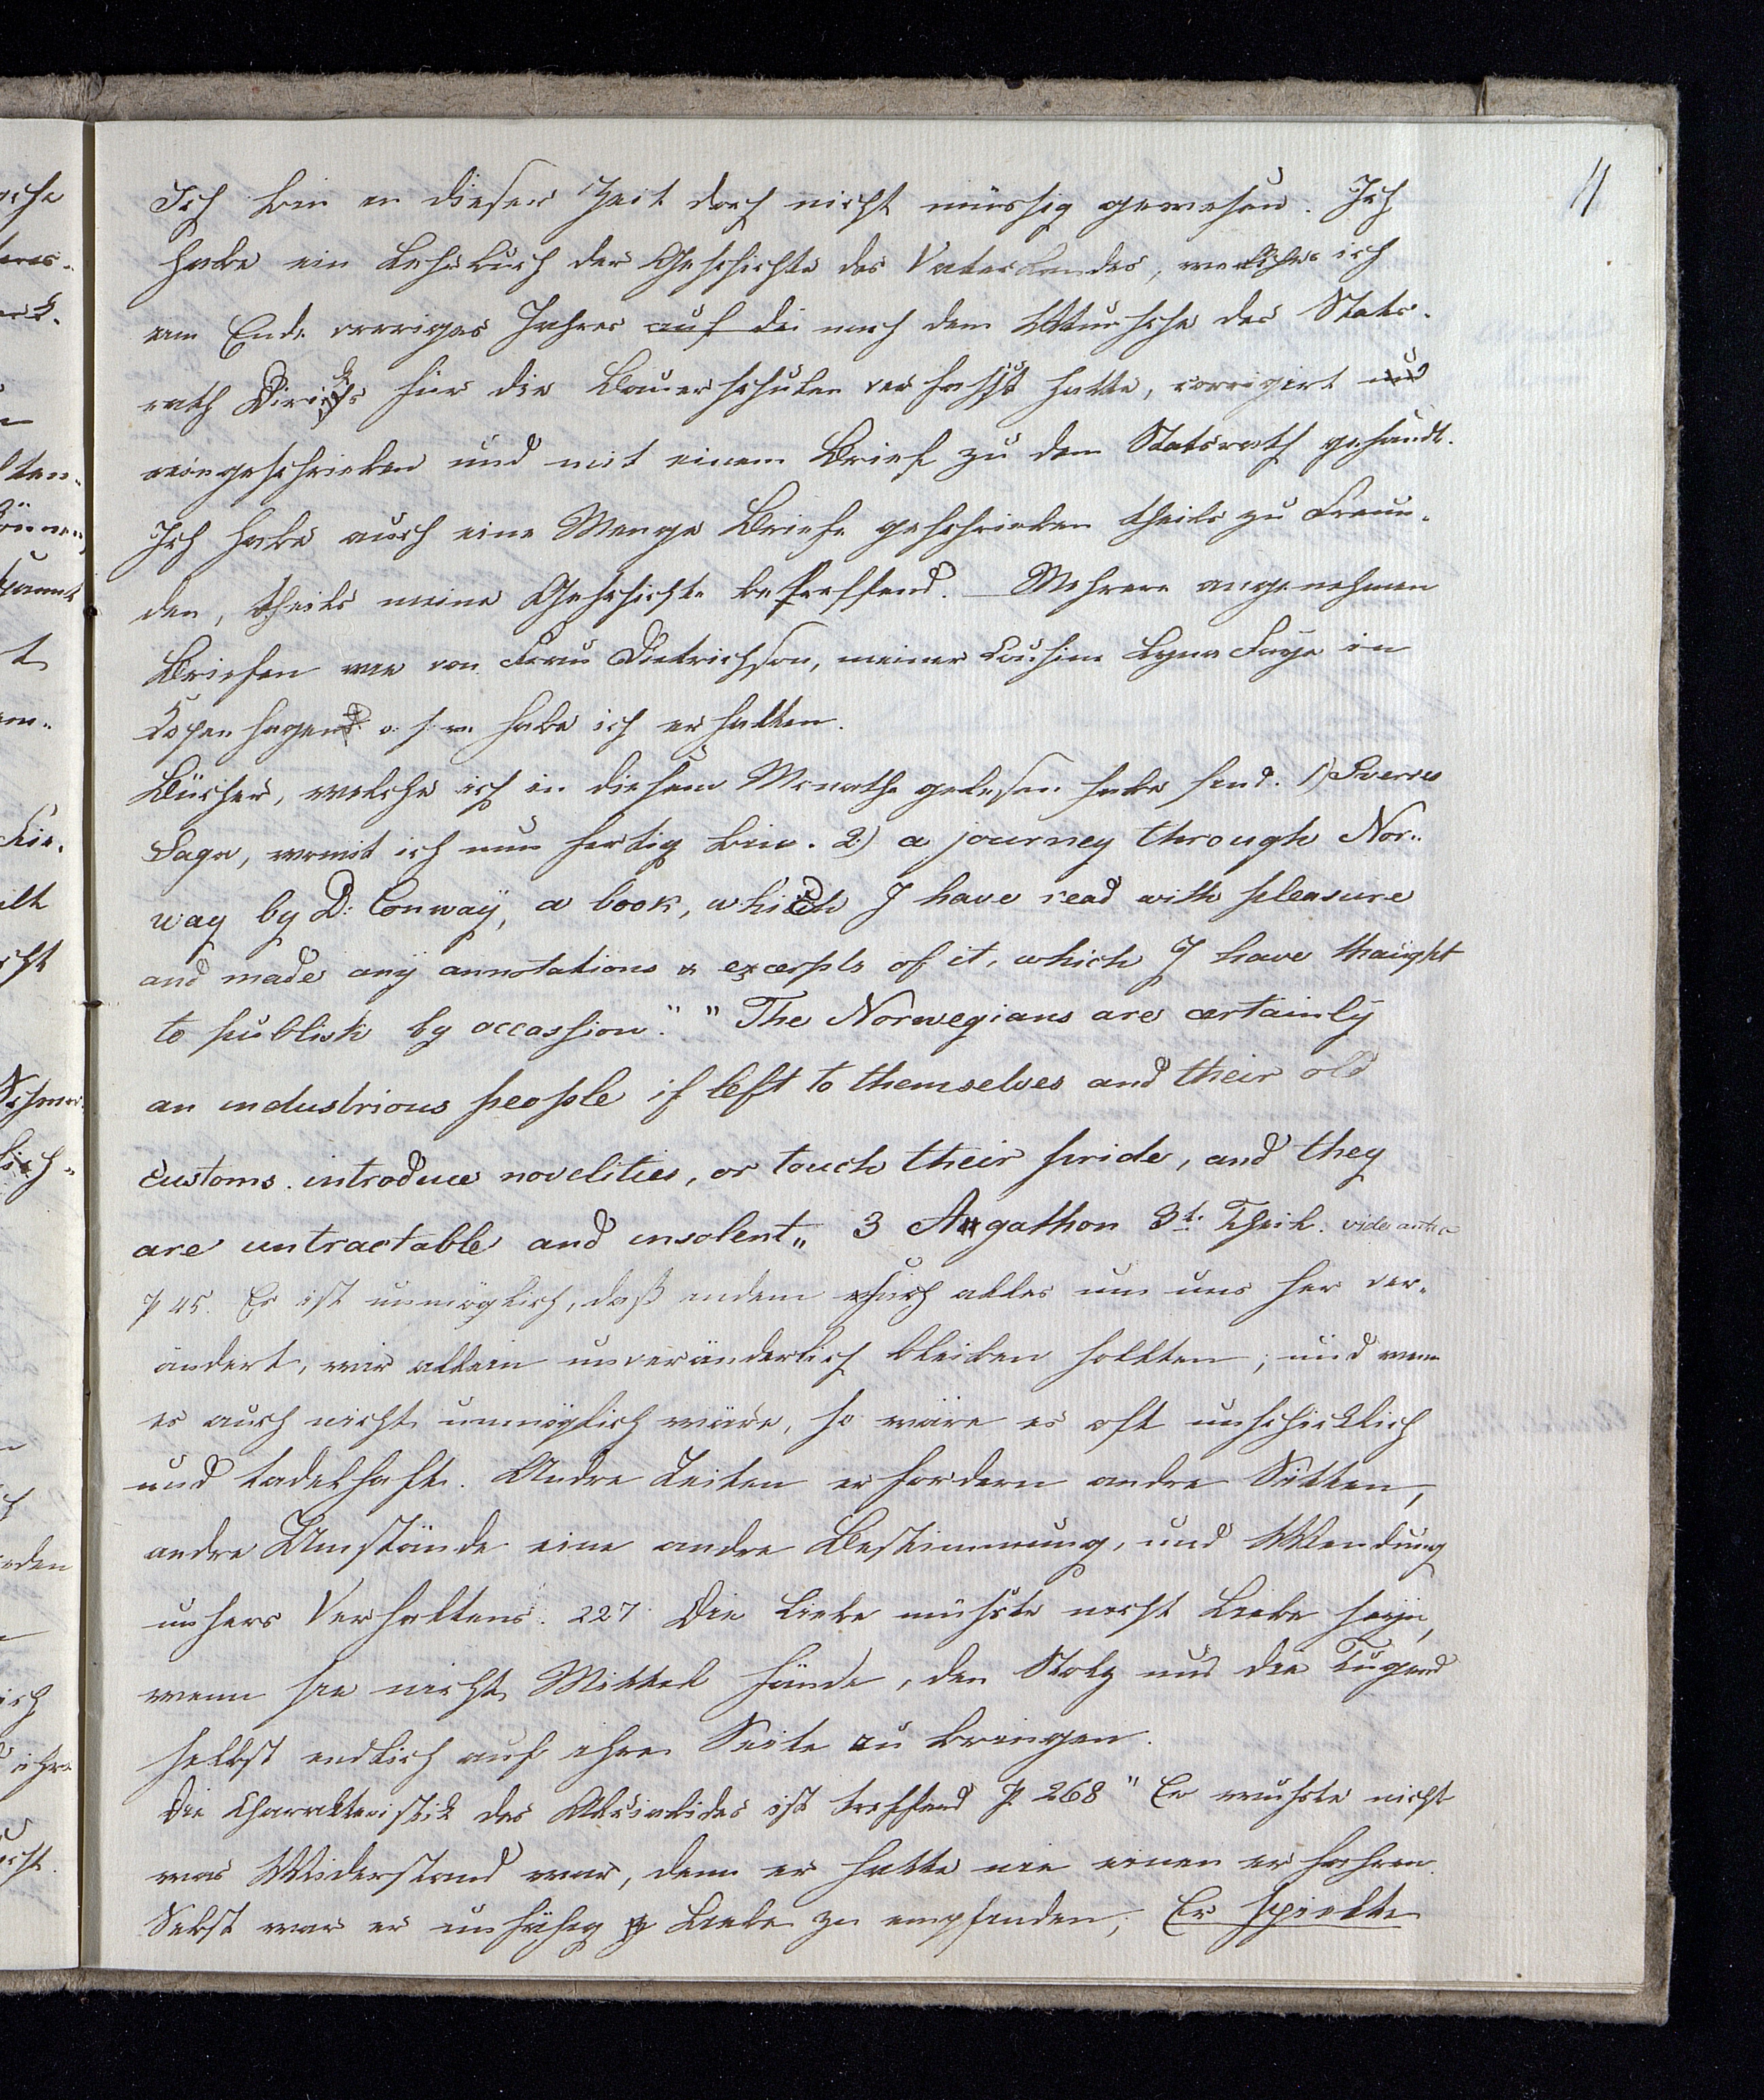 11
Ich bin in dieser Zeit doch nicht müssig gewesen. Ich
habe ein Lehrbuch der Geschichte des Vaterlandes, welches ich
am Ende vorriges Jahres auf die nach dem Wunsche des Stats-
rath Diriks für die Bauerschulen verfasst hatte, corrigirt und
reingeschrieben und mit einem Brief zu dem Statsrath gesandt.
Ich habe auch eine Menge Briefe geschrieben theils zu Freun-
den, theils meine Geschichte betreffend. Mehrere angenehmen
Briefen wie von Frau Dietrichson, meiner Cousine Lyna Faye in
Kopenhagen u. s. w. habe ich erhalten.
Bücher, welche ich in diesem Monathe gelesen habe sind. 1) Sverres
Saga, womit ich nun fertig bin. 2) a journey through Nor-
way by D: Conway, a book, which I have read with pleasure
and made any annotations & excerpts of it, which I have thaught
to publish by occassion." "The Norwegians are certainly
an industrious people if left to themselves and their old
customs. introduce novelities, or touch their pride, and they
are untractable and insolent„ 3 Agathon 3t. Theil. vide antea
p 45. Es ist unmöglich, daß indem sich alles um uns her ver-
ändert, wir allein unveränderlich bleiben sollten; und wenn
es auch nicht unmöglich wäre, so wäre es oft unschicklich
und tadelhaft. Andre Zeiten erfordern andre Sitten,
andre Umstände eine andre Bestimmung, und Wendung
unsers Verhaltens. 227. Die Liebe müsste nicht Liebe seyn,
wenn sie nicht Mittel fände, den Stolz und die Tugend
selbst endlich auf ihre Seite zu bringen.
Die Charakteristik des Alcibiades ist treffend p. 268 " Er wusste nicht
was Widerstand war, denn er hatte nie einen erfahren.
Selbst war er unfähig Liebe zu empfinden; Er spielte